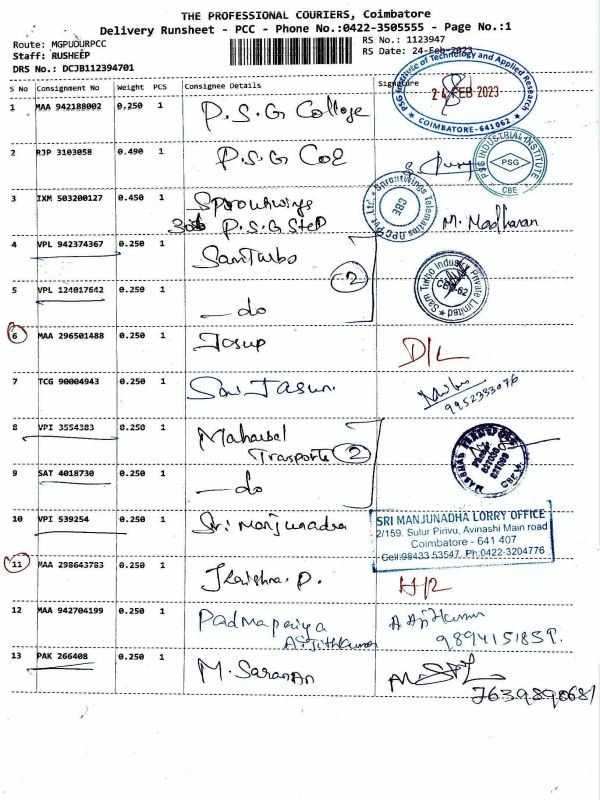 THE PROFESSIONAL COURIERS, Coimbatore
Delivery Runsheet - PCC - Phone No.:0422-3505555 - Page No.:1
Route: MGPUDURPCC
Staff: RUSHEEP
DRS No.: DCJB112394701
RS No.: 1123947
RS Date: 24-Feb-2023
S No Consignment No Weight PCS Consignee Details Signature
1 MAA 942188002 0.250 1 P.S.G College
PSG Institute of Technology and Applied Research
24 FEB 2023
COIMBATORE-641062
2 RJP 3103058 0.490 1 P.S.G COE
PSG INDUSTRIAL INSTITUTE
PSG
CBE
3 IXM 503200127 0.450 1 Sproutwings
P.S.G Step M. Madhavan
Sproutwings Telematics OPC Pvt. Ltd.
CBE
4 VPL 942374367 0.250 1 Sam Turbo
2
Sam Turbo Industry Private Limited
CBE-62
5 VPL 124017642 0.250 1 — do
6 MAA 296501488 0.250 1 D/L
7 TCG 90004943 0.250 1 Sri
9952333076
8 VPI 3554383 0.250 1
Trasports 2
9 SAT 4018730 0.250 1 — do
10 VPI 539254 0.250 1 Sri Manjunadha
SRI MANJUNADHA LORRY OFFICE
2/159. Sulur Pirivu, Avinashi Main road
Coimbatore - 641 407
Cell:98433 53547, Ph:0422-3204776
11 MAA 298643783 0.250 1
12 MAA 942704199 0.250 1 Padmapriya
A. Ajithkumar
9894151859.
13 PAK 266408 0.250 1 M. Saranan
7639890681